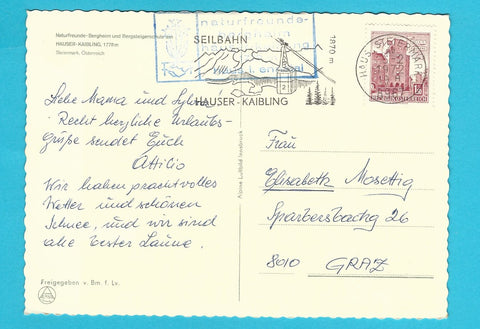 Naturfreunde-Bergheim und Bergsteigerschule am
HAUSER-KAIBLING, 1778m
Steiermark, Österreich
naturfreunde-
SEILBAHN
1870 m
HAUSER-KAIBLING
HAUS, STEIERMARK
Liebe Mama und Sylvia
Recht herzliche Urlaubs-
grüße sendet Euch
Attilio
Wir haben prachtvolles
Wetter und schönen
Schnee, und wir sind
alle bester Laune.
Freigegeben v. Bm. f. Lv.
Alpine Luftbild Innsbruck
Frau
Elisabeth Mosettig
Sparbersbachg 26
8010 GRAZ